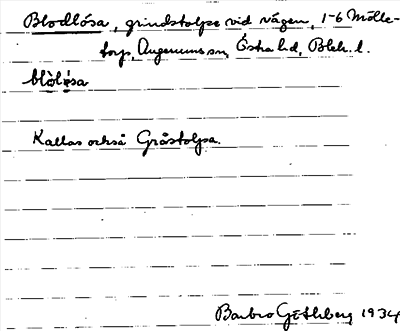 Blodlósa, grindstolpe vid vägen, 1-6 Mölle-
torp, Augerums sn, Östra hd, Blek. l.
blòlósa
Kallas också Gråstolpa.
Barbro Göthberg 1934